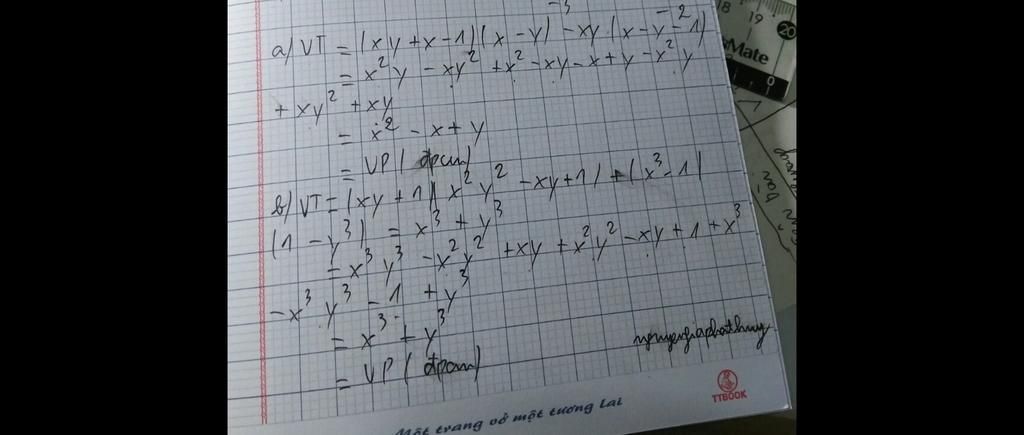 a) VT = (xy + x - 1)(x - y) - xy (x - y - 1)
= x²y - xy² + x² - xy - x + y - x²y
+ xy² + xy
= x² - x + y
= VP (đpcm)
b) VT = (xy + 1)(x²y² - xy + 1) + (x³ - 1)
(1 - y³) = x³ + y³
= x³y³ - x²y² + xy + x²y² - xy + 1 + x³
- x³y³ - 1 + y³
= x³ + y³
= VP (đpcm)
18 19 20
Mate
0
TTBOOK
Một trang vở một tương lai